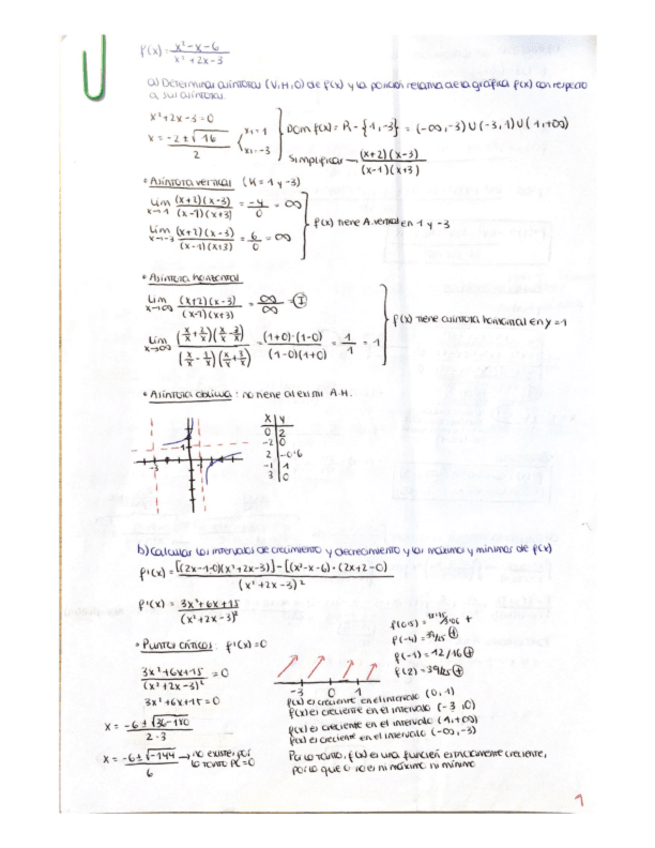 f(x) = x²-x-6 / x²+2x-3
a) Determinar asíntotas (V, H, O) de f(x) y la posición relativa de la gráfica f(x) con respecto
a sus asíntotas.
x²+2x-3=0
x = -2±√16 / 2 { x₁=1 x₂=-3
Dom f(x) = R - {1,-3} = (-∞,-3) U (-3,1) U (1,+∞)
Simplificar → (x+2)(x-3) / (x-1)(x+3)
• Asíntota vertical (K=1 y -3)
lim x→1 (x+2)(x-3) / (x-1)(x+3) = -4/0 = ∞
lim x→-3 (x+2)(x-3) / (x-1)(x+3) = 6/0 = ∞
f(x) tiene A. vertical en 1 y -3
• Asíntota horizontal
lim x→∞ (x+2)(x-3) / (x-1)(x+3) = ∞/∞ = I
lim x→∞ (x/x + 2/x)(x/x - 3/x) / (x/x - 1/x)(x/x + 3/x) = (1+0)·(1-0) / (1-0)(1+0) = 1/1 = 1
f(x) tiene asíntota horizontal en y=1
• Asíntota oblicua: no tiene al existir A.H.
x | y
0 | 2
-2 | 0
2 | -0'8
-1 | 1
3 | 0
-3 1
b) Calcular los intervalos de crecimiento y decrecimiento y los máximos y mínimos de f(x)
f'(x) = [(2x-1-0)(x²+2x-3)] - [(x²-x-6)·(2x+2-0)] / (x²+2x-3)²
f'(x) = 3x²+6x+15 / (x²+2x-3)²
• Puntos críticos: f'(x)=0
3x²+6x+15 / (x²+2x-3)² = 0
3x²+6x+15=0
x = -6±√36-180 / 2·3
x = -6±√-144 / 6 → no existe, por lo tanto PC=0
f(-4) = 39/25 ⊕
f(-1) = 12/16 ⊕
f(2) = 39/25 ⊕
-3 0 1
f(x) es creciente en el intervalo (0,1)
f(x) es creciente en el intervalo (-3,0)
f(x) es creciente en el intervalo (1,+∞)
f(x) es creciente en el intervalo (-∞,-3)
Por lo tanto, f(x) es una función estrictamente creciente,
por lo que 0 no es ni máximo ni mínimo
1